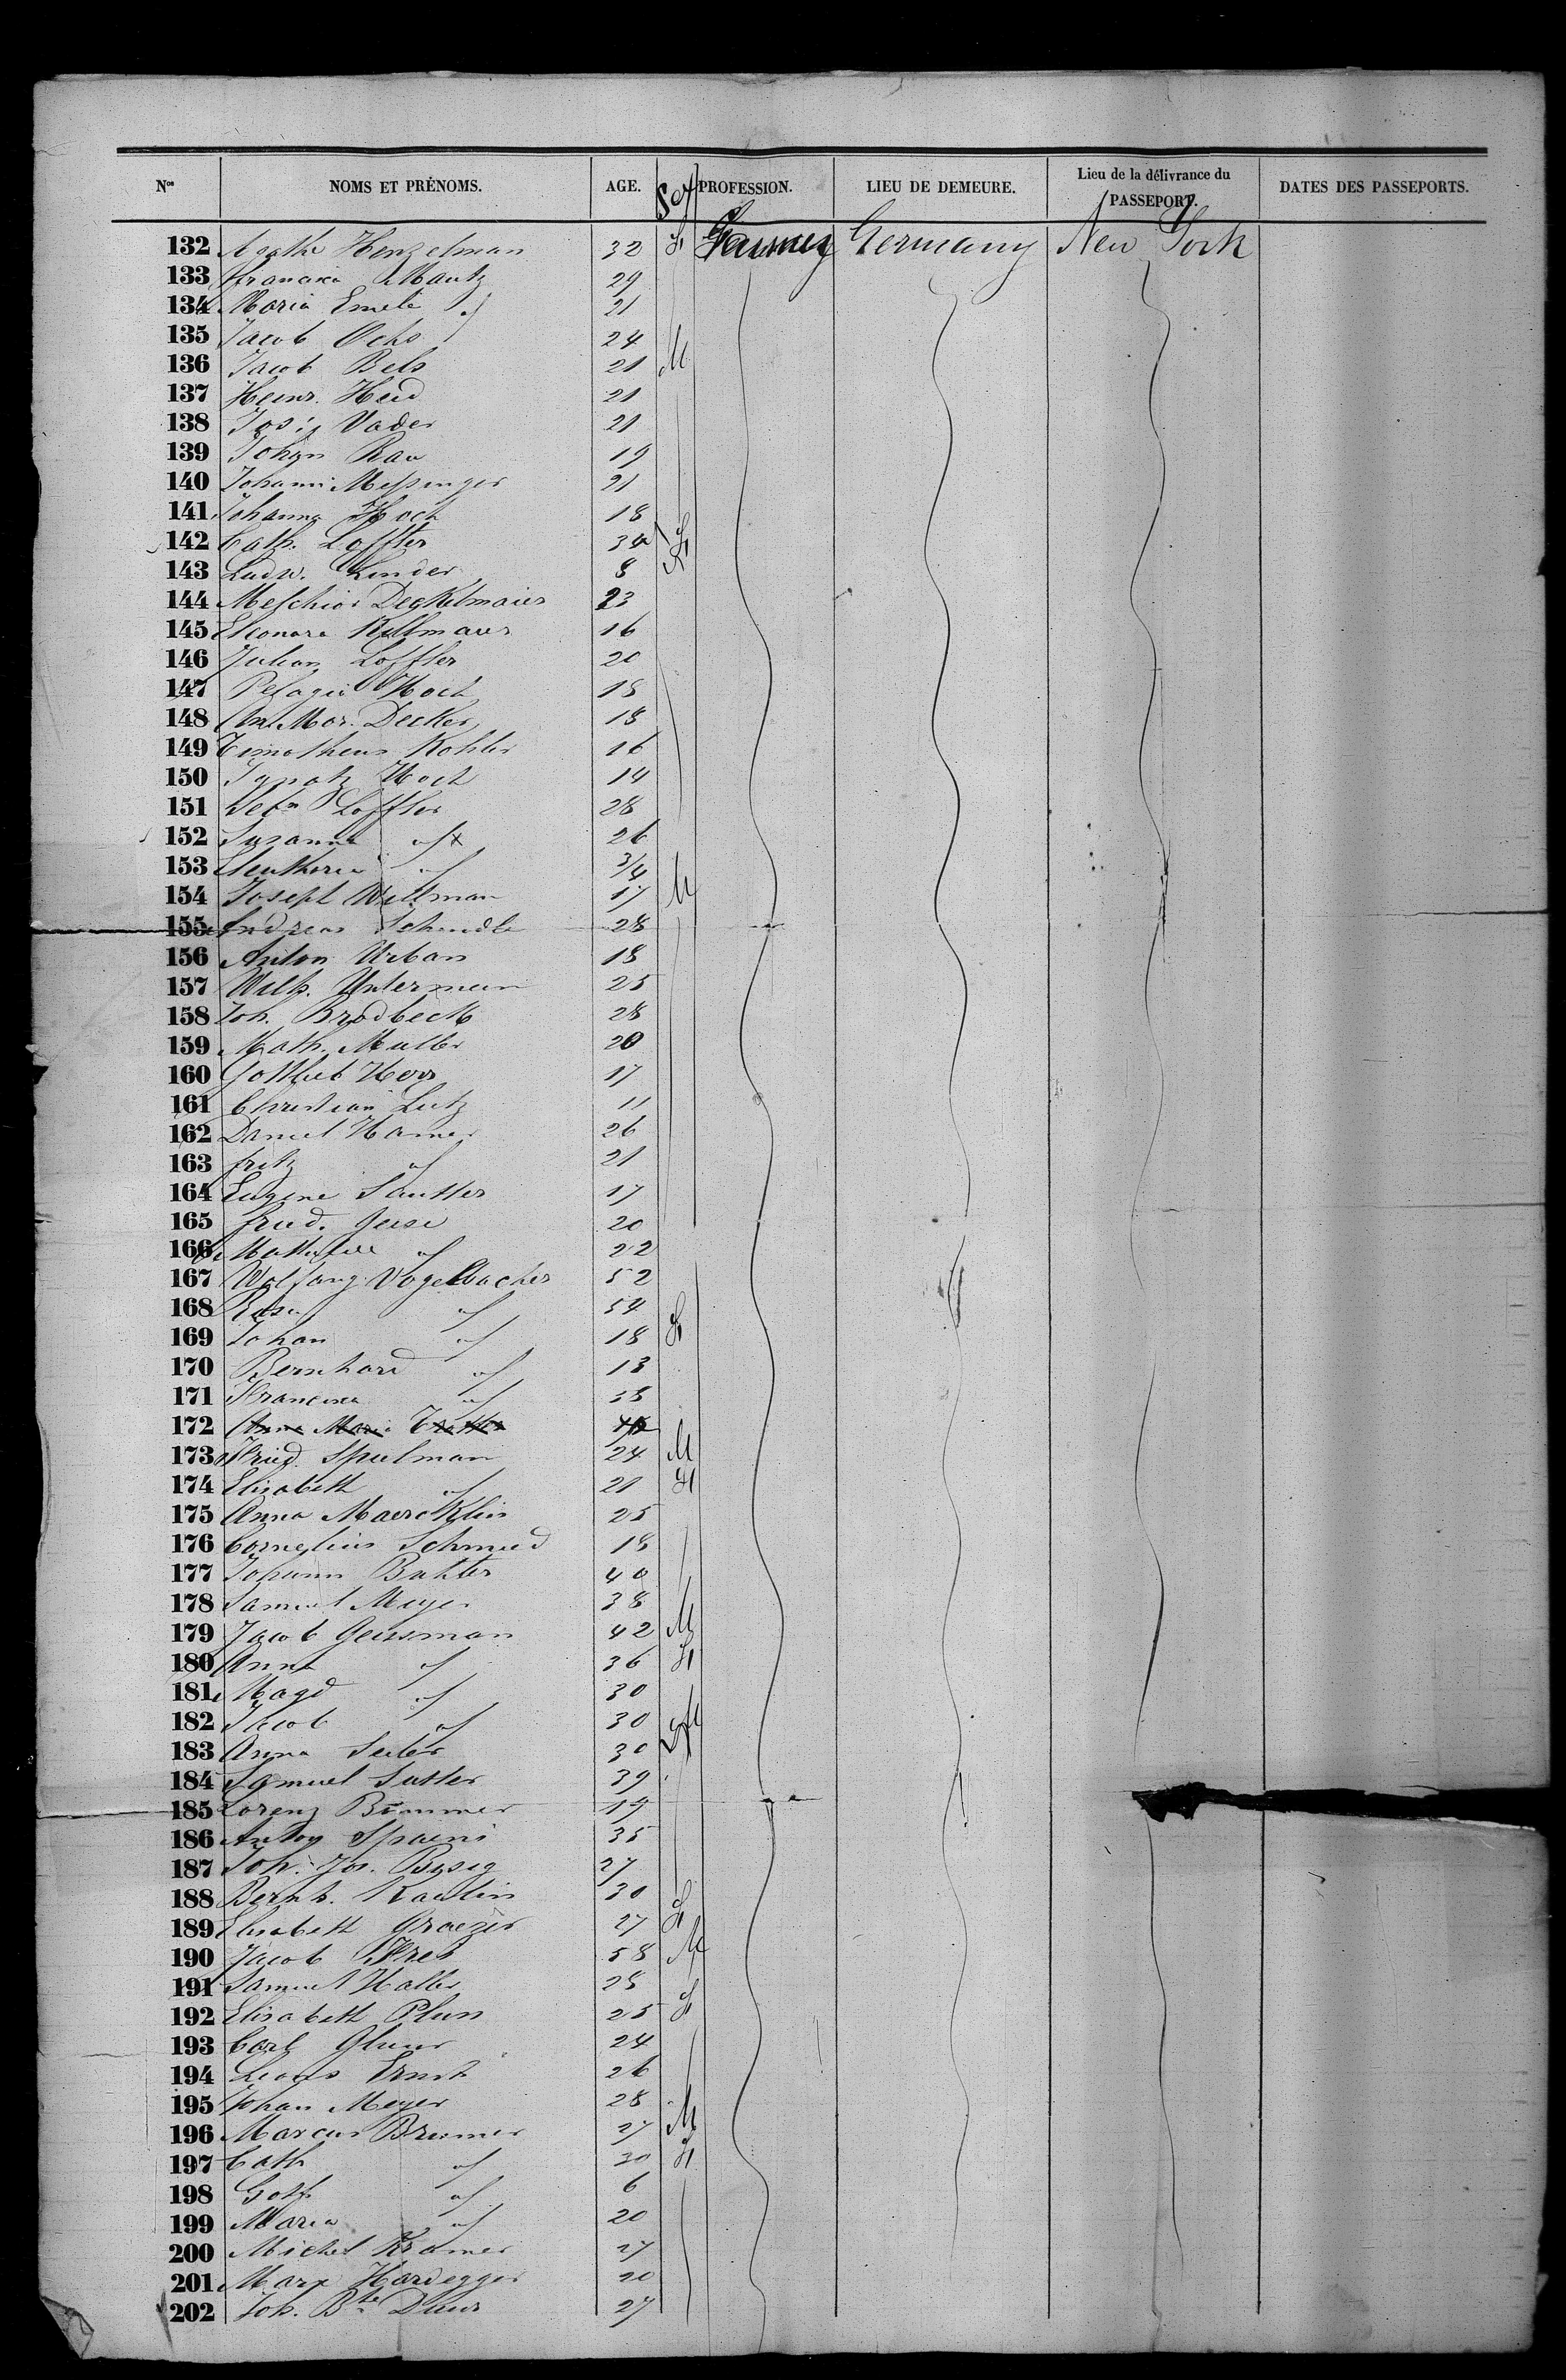 Nos NOMS ET PRÉNOMS. AGE. Sex PROFESSION. LIEU DE DEMEURE. Lieu de la délivrance du PASSEPORT. DATES DES PASSEPORTS.
132 Agathe Henzelman 32 F Farmer Germany New York
133 Francisca Mautz 29
134 Maria Emele " 21
135 Jacob Ochs 24
136 Jacob Bels 21 M
137 Heinr. Heid 21
138 Vader 21
139 Johan Rau 19
140 Johann Messinger 21
141 Johanna Hoch 18
142 Cath. Loffler 34 F
143 Ludw. Linder 8
144 Melchior Deckelmaier 23
145 Eleonora Kellmaier 16
146 Julian Loffler 20
147 Pelagia Hoch 18
148 An. Mar. Decker 18
149 Timotheus Kohler 16
150 Ignatz Hoch 14
151 Loffler 28
152 Susanna " 26
153 " 3/4
154 Joseph Willman 17 M
155 Andreas Schindle 28
156 Anton Urban 18
157 Wilh. Unterman 25
158 Joh. Brodbeck 28
159 Math. Muller 20
160 Gottlieb Herr 17
161 Christian Lutz 11
162 Daniel Hamer 26
163 fritz " 21
164 Eugene Sautter 17
165 fried. 20
166 " 22
167 Wolfang Vogelbacher 52
168 Rosa " 54
169 Johan " 18 F
170 Bernhard " 13
171 Francisca " 38
172 Anna Maria
173 Fried. Spielman 24 M
174 Elisabeth " 21 F
175 Anna Maercklin 25
176 Cornelius Schmied 18
177 Johann Buhler 40
178 Samuel Meyer 38
179 Jacob Geissman 42 M
180 Anna " 36 F
181 Magd " 30
182 Jacob " 30 M
183 Anna Seiler 30
184 Samuel Sutter 39
185 Lorenz Brummer 19
186 Anton 35
187 Joh. Jos. Bysig 27
188 Bernh. Kaelin 30
189 Elisabeth Graezer 27 F
190 Jacob 58 M
191 Samuel Haller 28
192 Elisabeth Plun 25 F
193 Carl 24
194 Ernst 26
195 Johan Meyer 28
196 Marcus Brumer 27 M
197 Cath " 30 F
198 Goth " 6
199 Maria " 20
200 Michel Kramer 27
201 Marx Hardegger 20
202 Joh. Bte 27